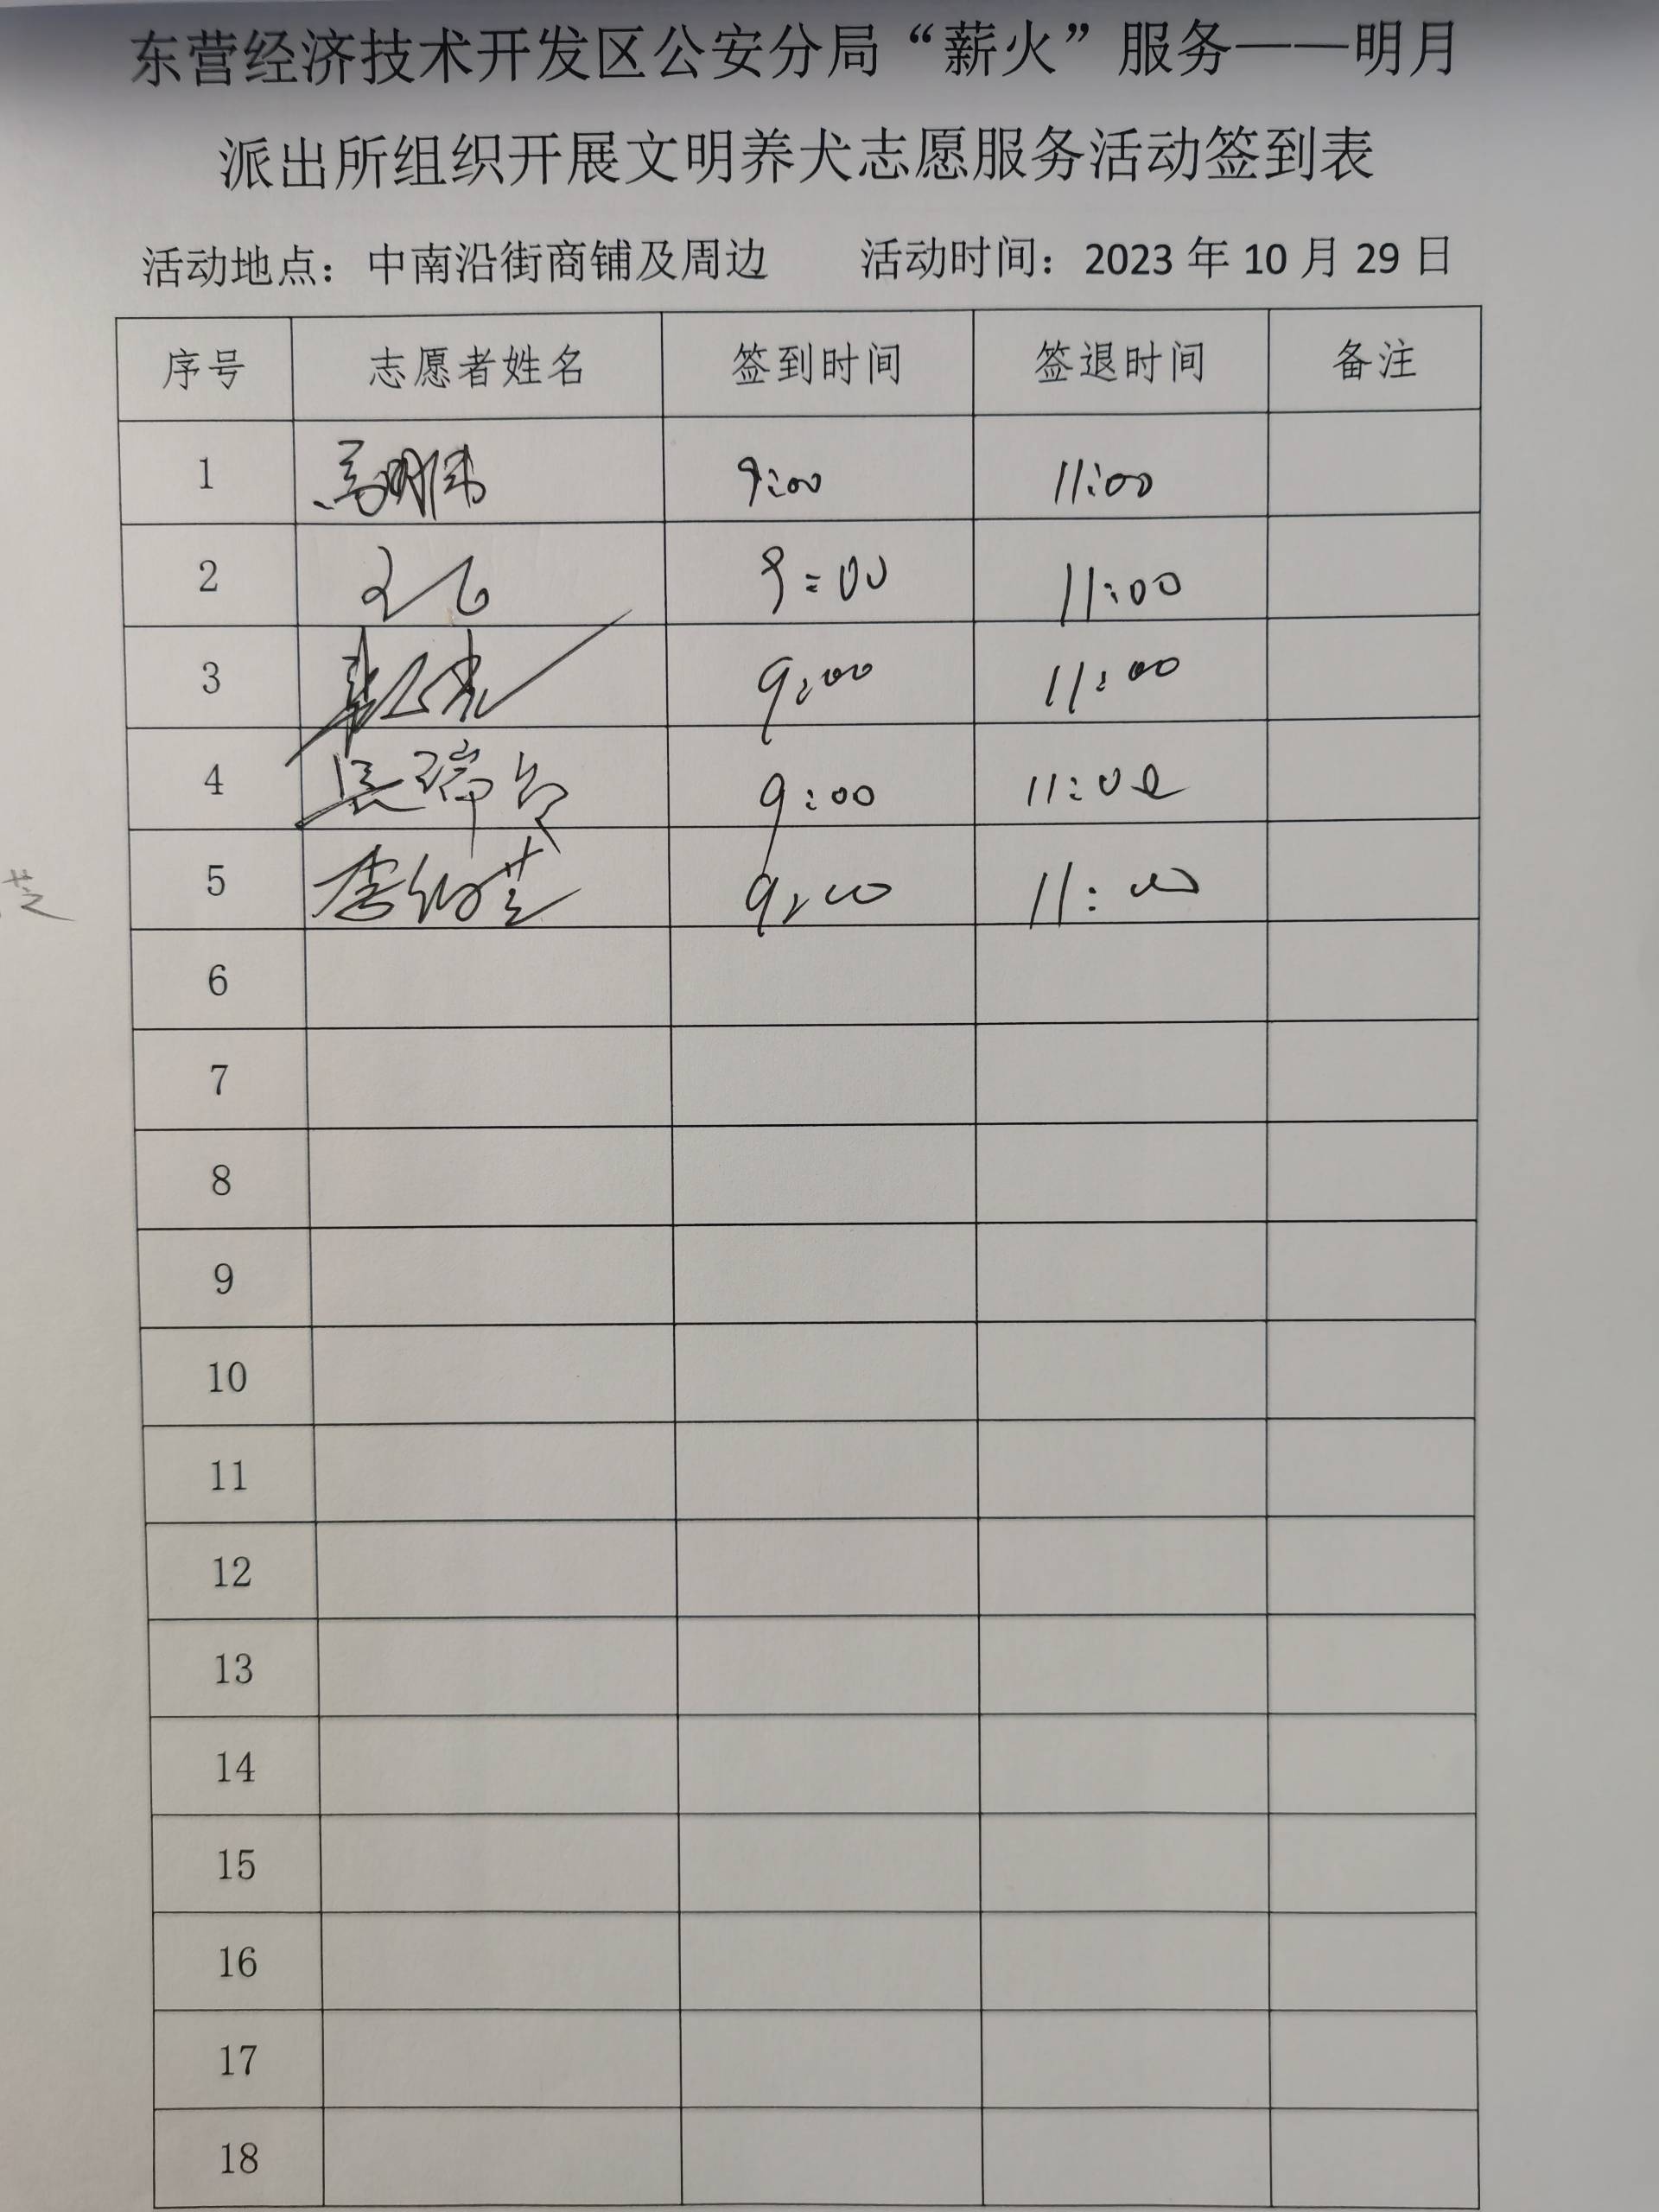 东营经济技术开发区公安分局“薪火”服务——明月
派出所组织开展文明养犬志愿服务活动签到表
活动地点：中南沿街商铺及周边 活动时间：2023 年 10 月 29 日
序号 志愿者姓名 签到时间 签退时间 备注
1 马明伟 9:00 11:00
2 9:00 11:00
3 9:00 11:00
4 吴瑞 9:00 11:00
5 李 芝 9:00 11:00
芝
6
7
8
9
10
11
12
13
14
15
16
17
18